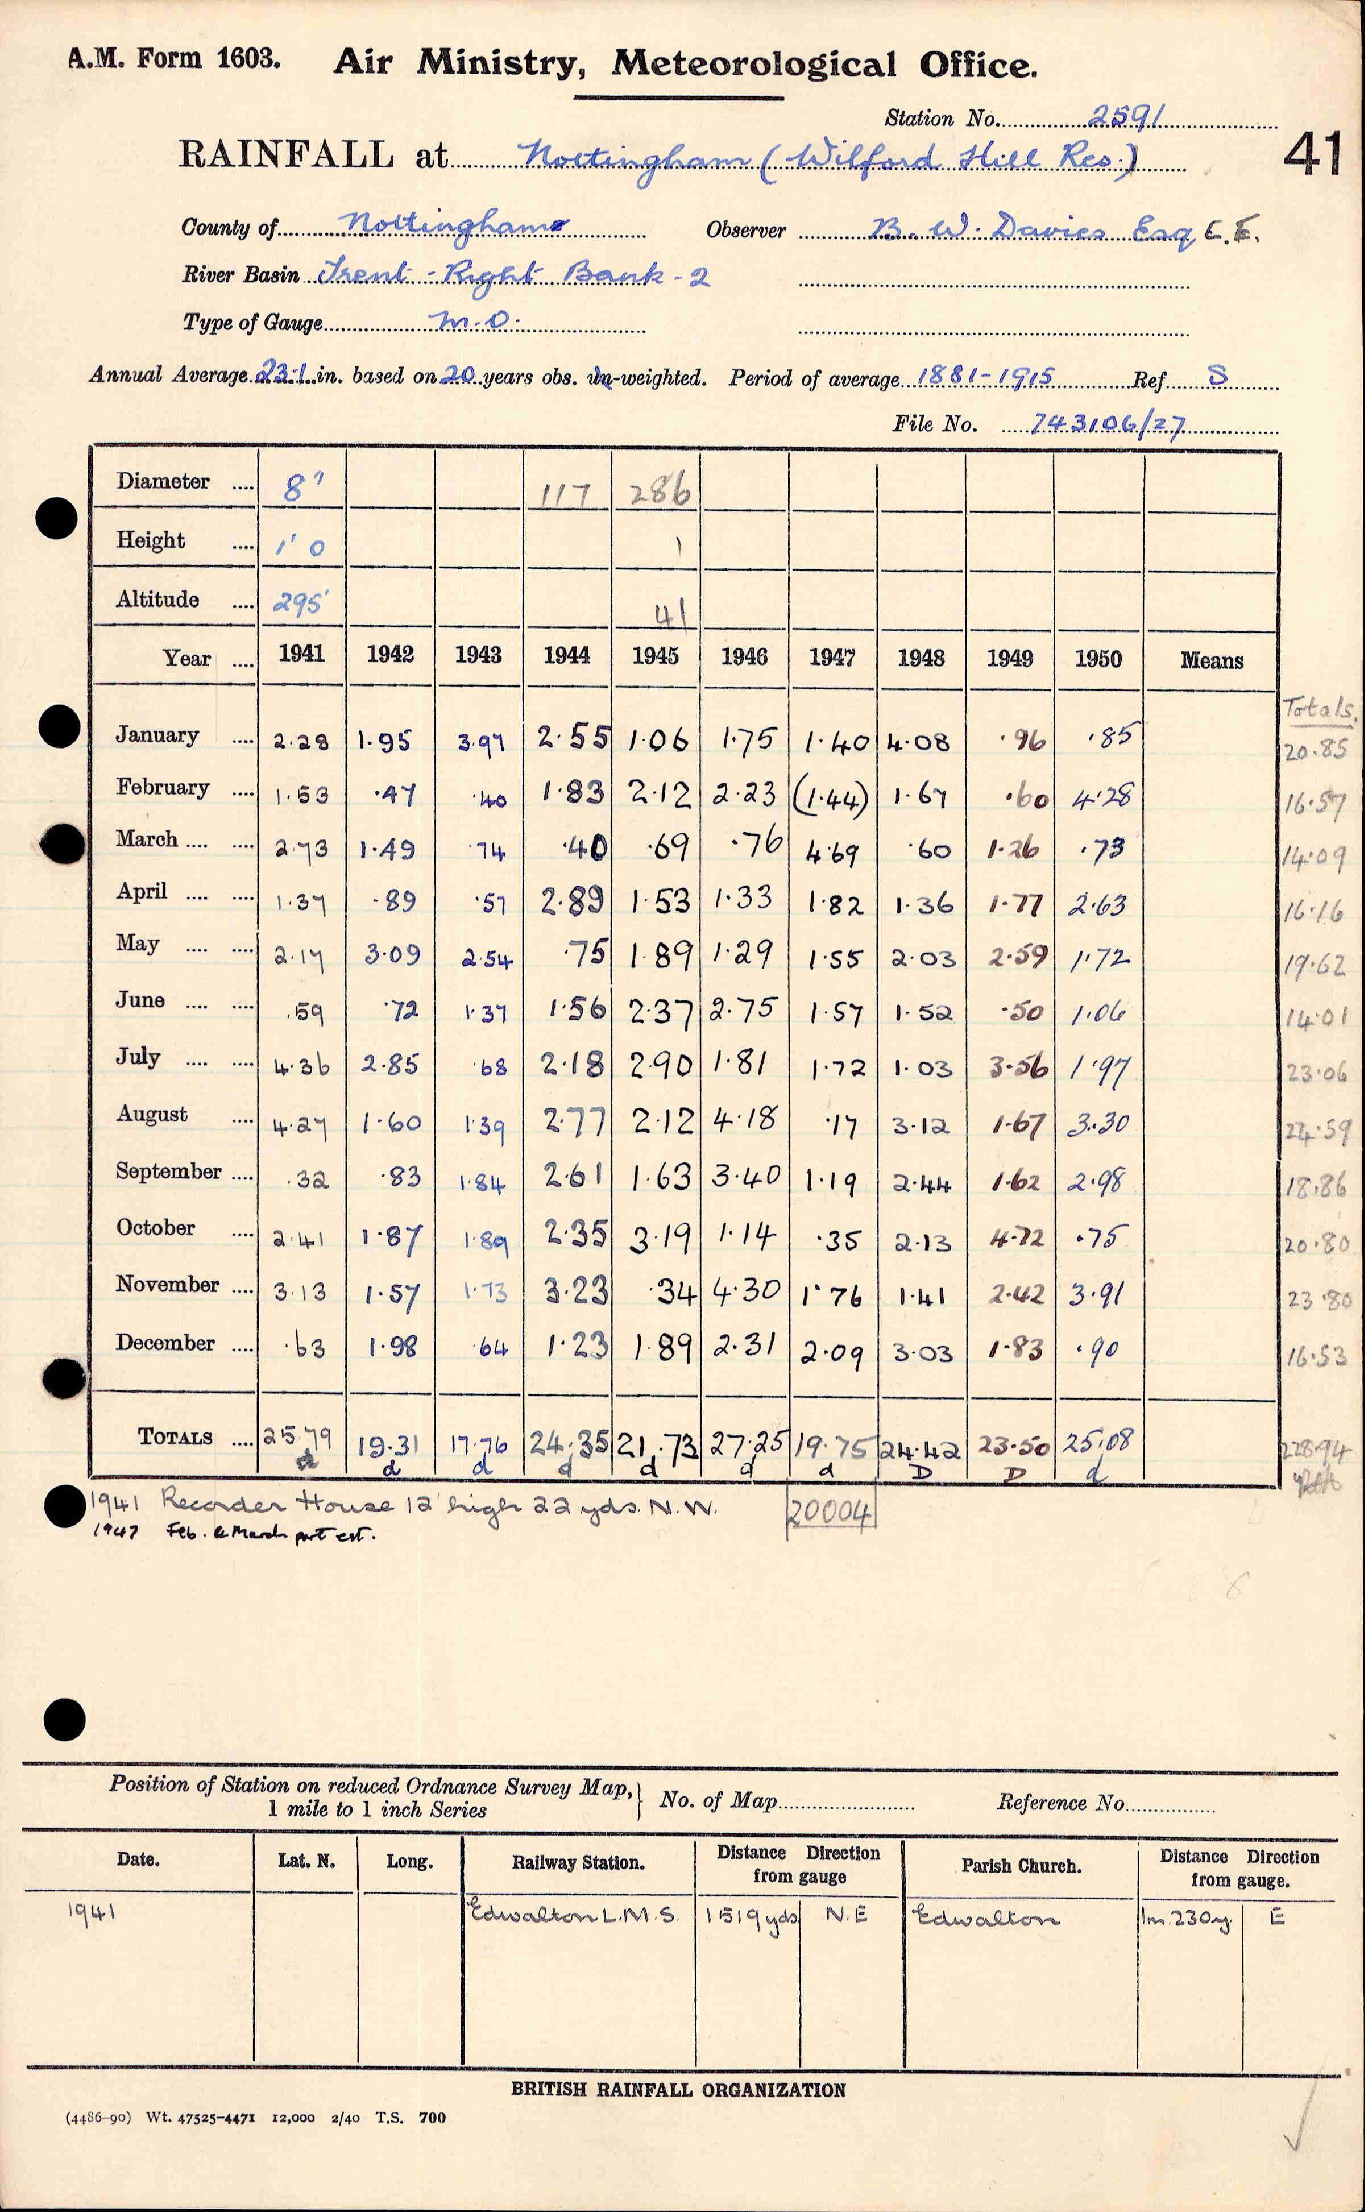 A.M. Form 1603. Air Ministry, Meteorological Office.
Station No. 2591
RAINFALL at Nottingham (Wilford Hill Res.) 41
County of Nottingham Observer B. W. Davies Esq C.E.
River Basin Trent - Right Bank - 2
Type of Gauge M.O.
Annual Average 23.1 in. based on 20 years obs. un-weighted. Period of average 1881-1915 Ref S
File No. 743106/27
Diameter .... 8" 117 286
Height .... 1' 0 1
Altitude .... 295' 41
Year .... 1941 1942 1943 1944 1945 1946 1947 1948 1949 1950 Means
Totals.
January .... 2.28 1.95 3.97 2.55 1.06 1.75 1.40 4.08 .96 .85 20.85
February .... 1.53 .47 .40 1.83 2.12 2.23 (1.44) 1.67 .60 4.28 16.57
March .... .... 2.73 1.49 .74 .40 .69 .76 4.69 .60 1.26 .73 14.09
April .... .... 1.37 .89 .57 2.89 1.53 1.33 1.82 1.36 1.77 2.63 16.16
May .... .... 2.17 3.09 2.54 .75 1.89 1.29 1.55 2.03 2.59 1.72 19.62
June .... .... .59 .72 1.37 1.56 2.37 2.75 1.57 1.52 .50 1.06 14.01
July .... .... 4.36 2.85 .68 2.18 2.90 1.81 1.72 1.03 3.56 1.97 23.06
August .... 4.27 1.60 1.39 2.77 2.12 4.18 .17 3.12 1.67 3.30 24.59
September .... .32 .83 1.84 2.61 1.63 3.40 1.19 2.44 1.62 2.98 18.86
October .... 2.41 1.87 1.89 2.35 3.19 1.14 .35 2.13 4.72 .75 20.80
November .... 3.13 1.57 1.73 3.23 .34 4.30 1.76 1.41 2.42 3.91 23.80
December .... .63 1.98 .64 1.23 1.89 2.31 2.09 3.03 1.83 .90 16.53
TOTALS .... 25.79 19.31 17.76 24.35 21.73 27.25 19.75 24.42 23.50 25.08 228.94
d d d d d d D D d
1941 Recorder House 12' high 22 yds. N.W. 20004
1947 Feb. & March part est.
Position of Station on reduced Ordnance Survey Map, No. of Map Reference No.
1 mile to 1 inch Series
Date. Lat. N. Long. Railway Station. Distance Direction from gauge Parish Church. Distance Direction from gauge.
1941 Edwalton L.M.S. 1519 yds N.E Edwalton 1m. 230y. E
BRITISH RAINFALL ORGANIZATION
(4486-90) Wt. 47525-4471 12,000 2/40 T.S. 700